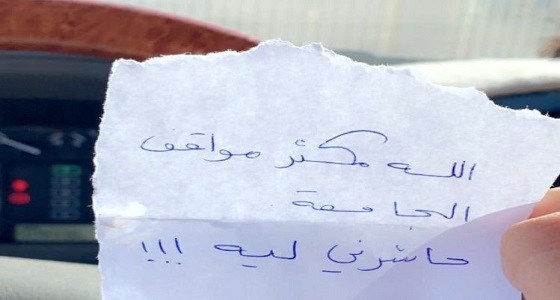 الله مكثر مواقف
الجامعة
حاشرني ليه !!!